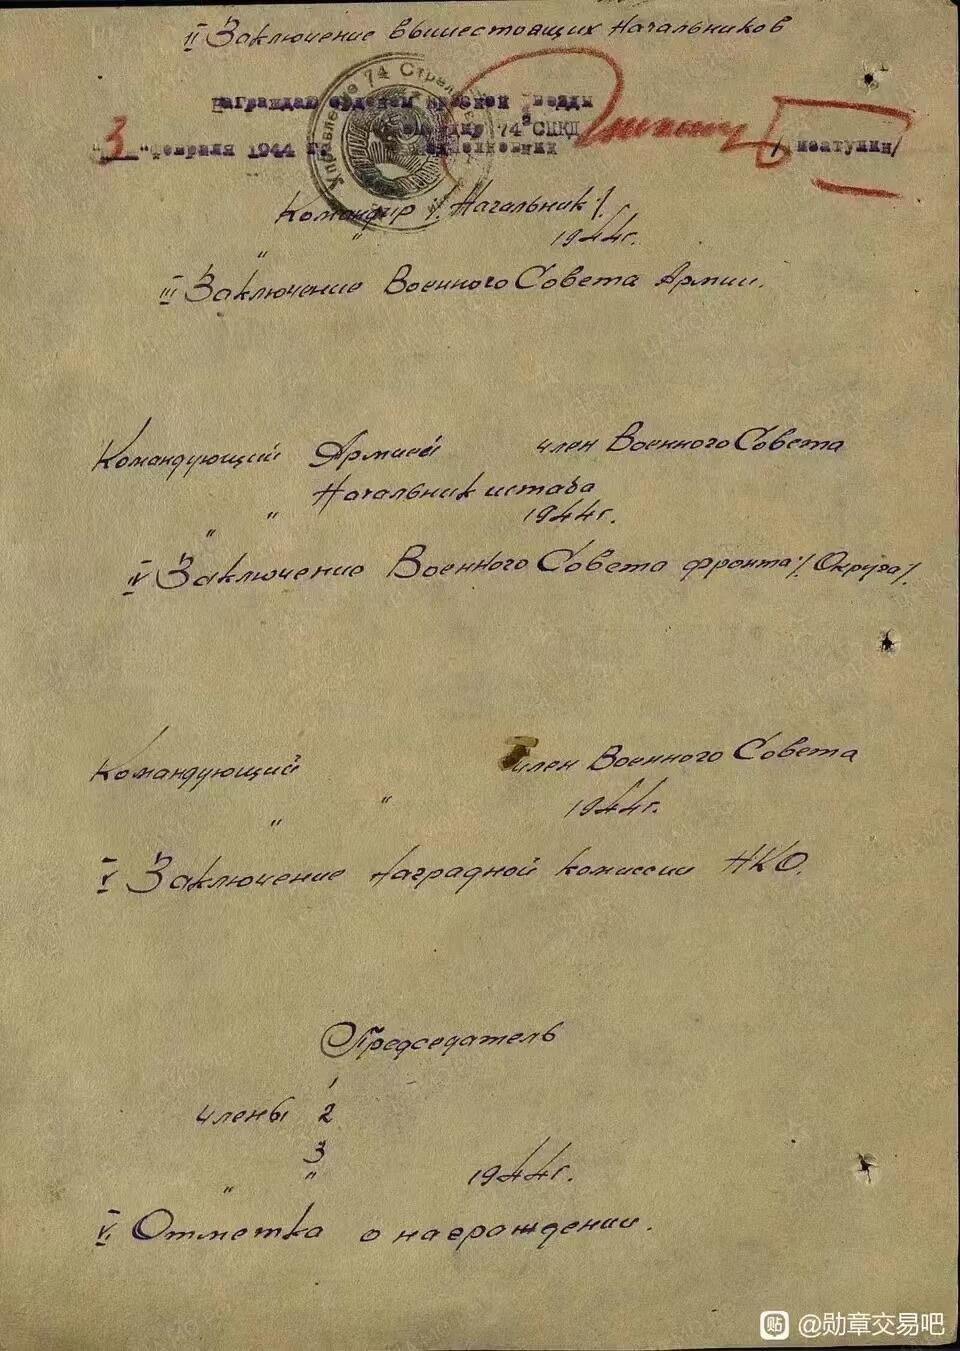 II Заключение вышестоящих Начальников
Награждаю орденом Красной Звезды
Командир 74 СПКД
"3" февраля 1944 г. Полковник /Изатулин/
Управление 74 Стрел
Командир /. Начальник/.
" " 1944г.
III Заключение Военного Совета Армии.
Командующий Армией член Военного Совета
Начальник штаба
" " 1944г.
IV Заключение Военного Совета фронта /. Округа/.
Командующий член Военного Совета
" " 1944г.
V Заключение Наградной комиссии НКО.
Председатель
1
члены 2
3
" " 1944г.
VI Отметка о награждении.
贴 @勋章交易吧